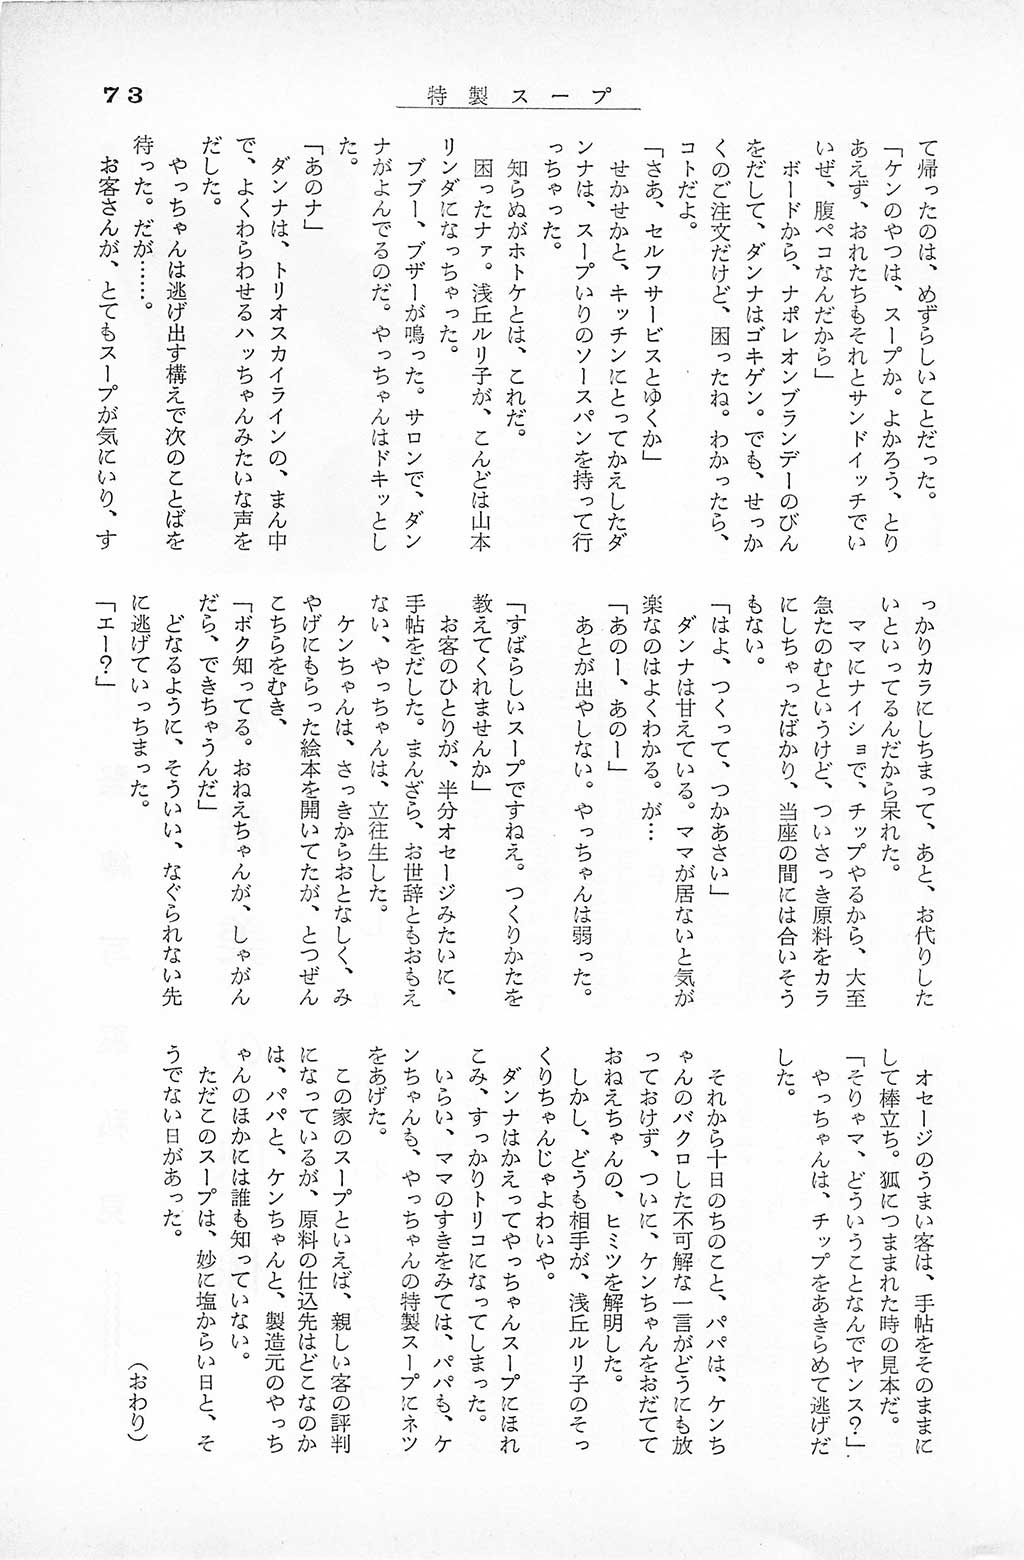 73
特製スープ
て帰ったのは、めずらしいことだった。
「ケンのやつは、スープか。よかろう、とり
あえず、おれたちもそれとサンドイッチでい
いぜ、腹ペコなんだから」
ボードから、ナポレオンブランデーのびん
をだして、ダンナはゴキゲン。でも、せっか
くのご注文だけど、困ったね。わかったら、
コトだよ。
「さあ、セルフサービスとゆくか」
せかせかと、キッチンにとってかえしたダ
ンナは、スープいりのソースパンを持って行
っちゃった。
知らぬがホトケとは、これだ。
困ったナァ。浅丘ルリ子が、こんどは山本
リンダになっちゃった。
ブブー、ブザーが鳴った。サロンで、ダン
ナがよんでるのだ。やっちゃんはドキッとし
た。
「あのナ」
ダンナは、トリオスカイラインの、まん中
で、よくわらわせるハッちゃんみたいな声を
だした。
やっちゃんは逃げ出す構えで次のことばを
待った。だが……。
お客さんが、とてもスープが気にいり、す
っかりカラにしちまって、あと、お代りした
いといってるんだから呆れた。
ママにナイショで、チップやるから、大至
急たのむというけど、ついさっき原料をカラ
にしちゃったばかり、当座の間には合いそう
もない。
「はよ、つくって、つかあさい」
ダンナは甘えている。ママが居ないと気が
楽なのはよくわかる。が…
「あのー、あのー」
あとが出やしない。やっちゃんは弱った。
「すばらしいスープですねえ。つくりかたを
教えてくれませんか」
お客のひとりが、半分オセージみたいに、
手帖をだした。まんざら、お世辞ともおもえ
ない、やっちゃんは、立往生した。
ケンちゃんは、さっきからおとなしく、み
やげにもらった絵本を開いてたが、とつぜん
こちらをむき、
「ボク知ってる。おねえちゃんが、しゃがん
だら、できちゃうんだ」
どなるように、そういい、なぐられない先
に逃げていっちまった。
「エー？」
オセージのうまい客は、手帖をそのままに
して棒立ち。狐につままれた時の見本だ。
「そりゃマ、どういうことなんでヤンス？」
やっちゃんは、チップをあきらめて逃げだ
した。
それから十日のちのこと、パパは、ケンち
ゃんのバクロした不可解な一言がどうにも放
っておけず、ついに、ケンちゃんをおだてて
おねえちゃんの、ヒミツを解明した。
しかし、どうも相手が、浅丘ルリ子のそっ
くりちゃんじゃよわいや。
ダンナはかえってやっちゃんスープにほれ
こみ、すっかりトリコになってしまった。
いらい、ママのすきをみては、パパも、ケ
ンちゃんも、やっちゃんの特製スープにネツ
をあげた。
この家のスープといえば、親しい客の評判
になっているが、原料の仕込先はどこなのか
は、パパと、ケンちゃんと、製造元のやっち
ゃんのほかには誰も知っていない。
ただこのスープは、妙に塩からい日と、そ
うでない日があった。
（おわり）